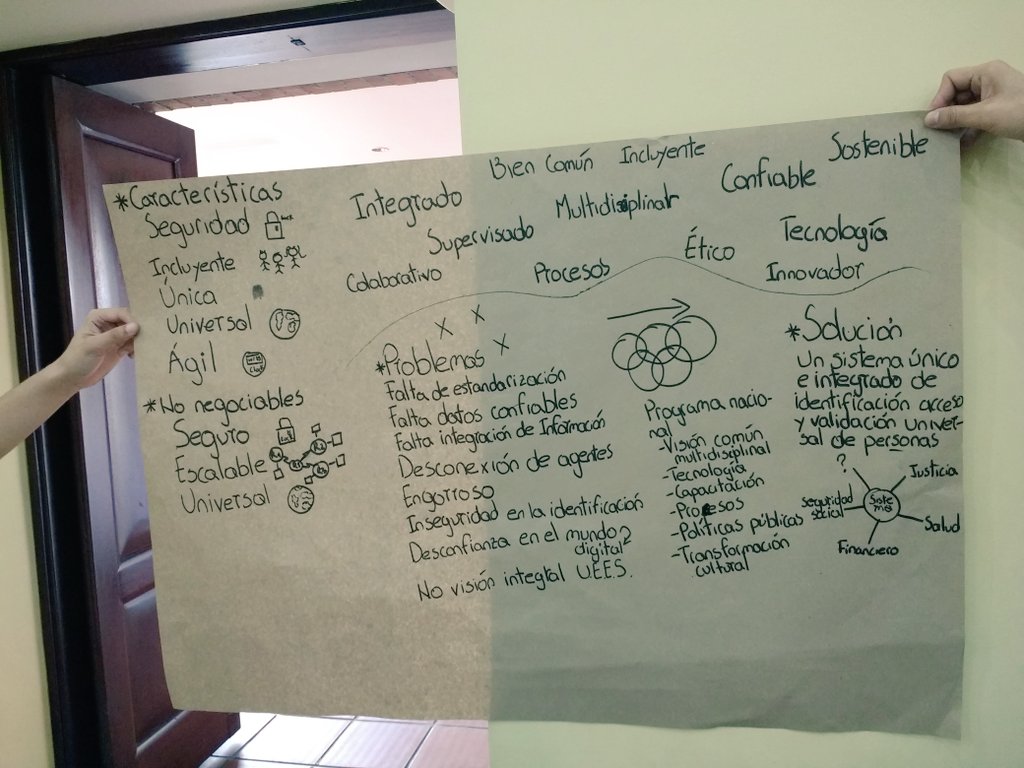 *Características
Seguridad
Incluyente
Única
Universal
Ágil
*No negociables
Seguro
Escalable
Universal
Bien Común
Incluyente
Sostenible
Integrado
Multidisiplinar
Confiable
Supervisado
Ético
Tecnología
Colaborativo
Procesos
Innovador
X X X
*Problemas
Falta de estandarización
Falta datos confiables
Falta integración de Información
Desconexión de agentes
Engorroso
Inseguridad en la identificación
Desconfianza en el mundo
digital
No visión integral U.E.E.S.
Programa nacio-
nal
-Visión común
multidisiplinal
-Tecnología
-Capacitación
-Procesos
-Políticas públicas
-Transformación
cultural
*Solución
Un sistema único
e integrado de
identificación acceso
y validación univer-
sal de personas
?
Justicia
seguridad
social
Salud
Financiero